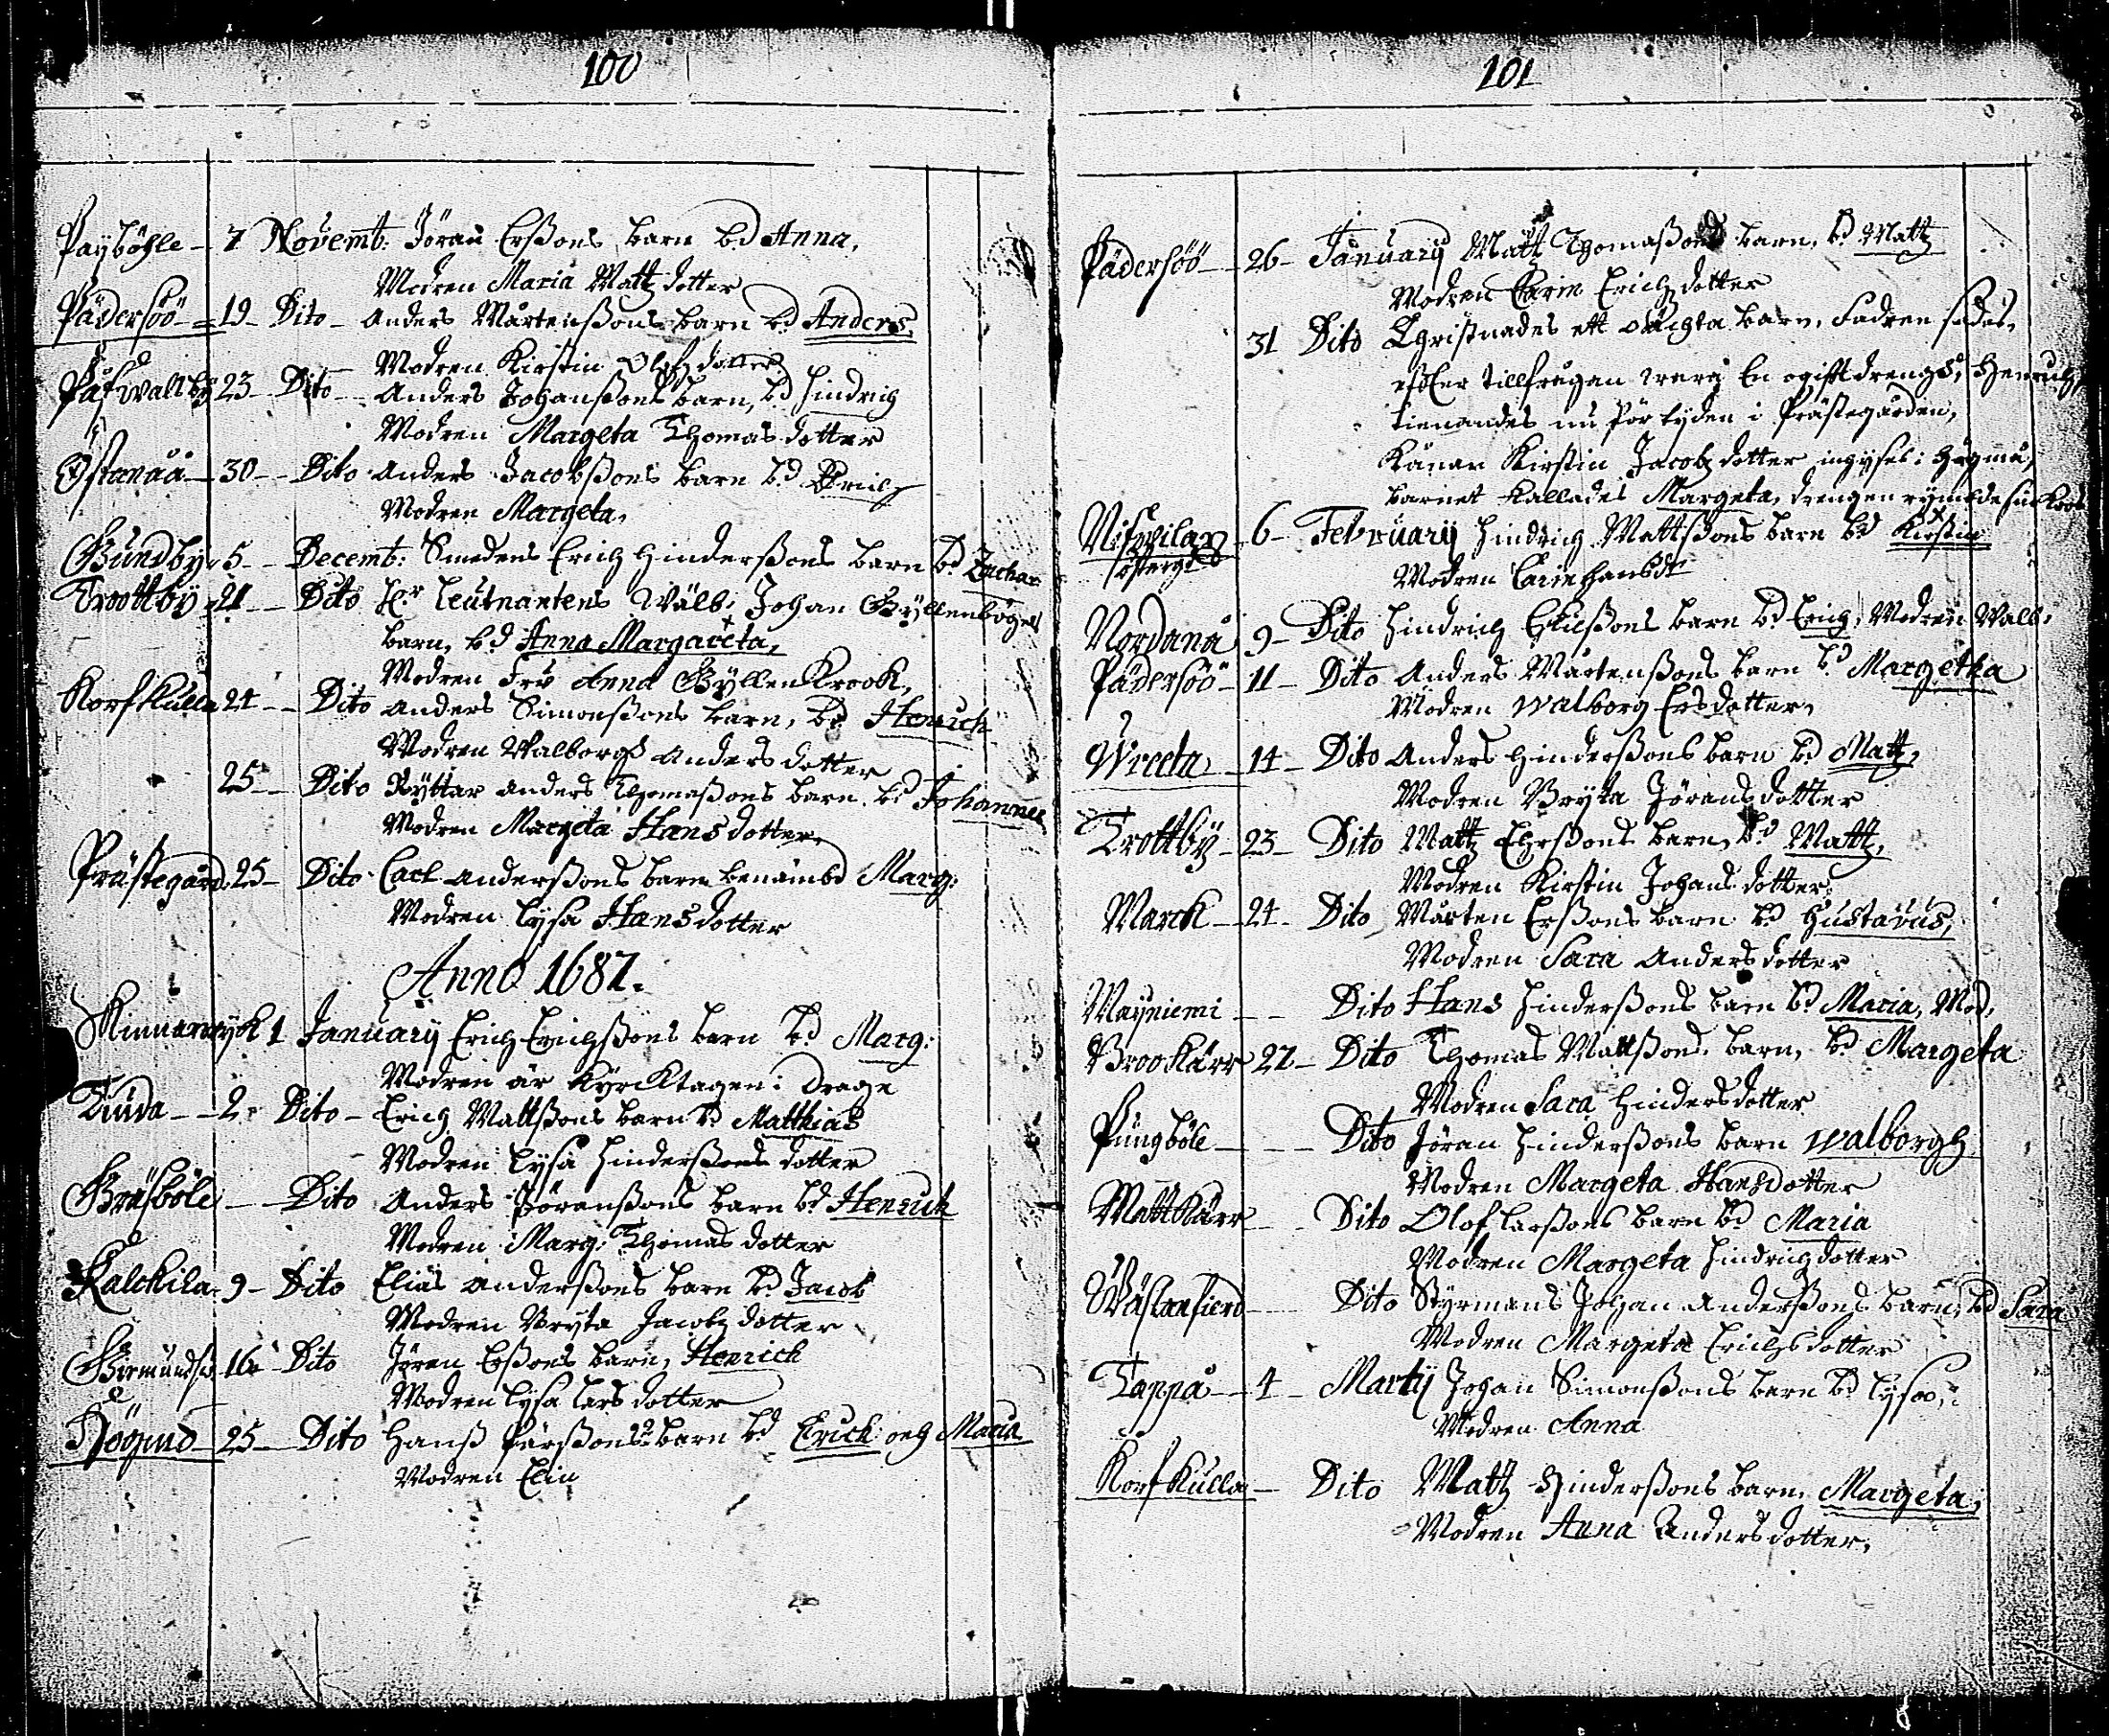 100
Payböhle - 7 Novemt: Jöran Erßons barn bd Anna,
Modren Maria Mattzdotter
Pädersöö - 19 - Dito - Anders Mårtenßons barn bd Anders,
Modren Kirstin Olofzdotter
Påfwalsby 23 - Dito - Anders Johanßons barn, bd Hindrich
Modren Margeta Thomasdotter
Östanåå - 30 - Dito Anders Jacobßons barn bd Erich
Modren Margeta,
Gundby - 5 - Decemt: Smedens Erich Hinderßons barn bd Zachar
Troottby - 21 - Dito Hr Leutnantens Wälb: Johan Gyllenbögels
barn, bd Anna Margareta,
Modren Fru Anna Gyllenkrook,
Korfkulla 24 - Dito Anders Simonßons barn, bd Henrich
Modren Walborg Andersdotter
25 - Dito Ryttar Anders Thomaßons barn bd Johannes
Modren Margeta Hansdotter,
Prästegård 25 - Dito Carl Anderßons barn benämbd Marg:
Modren Lysa Hansdotter
Anno 1687.
Skinnarwyk 1 January Erich Erichßons barn bd Marg:
Modren är kyrcktagen i Drage
Tiuda - 2 - Dito - Erich Mattßons barn bd Matthias
Modren Lysa Hinderßons dotter
Gräsböle - Dito Anders Jöranßons barn bd Henrich
Modren Marg: Thomasdotter
Kalckila - 9 - Dito Elias Anderßons barn bd Jacob
Modren Bryta Jacobzdotter
Germundsö 16 - Dito Jören Erßons barn, Henrich
Modren Lysa Larsdotter
Högmo - 25 - Dito Hanß Pärßons 2 barn bd Erich och Maria
Modren Elin
101
Pädersöö - 26 - January Mattz Thomaßons barn, bd Mattz
Modren Carin Erichzdotter
31 Dito Christnades ett oächta barn, Fadren sades,
effter tillfrågan wara En ogifft drengh, Henrich,
tienandes nu för tyden i Prästegården,
Kånan Kirstin Jacobzdotter inhyses i Högmo,
barnet kallades Margeta, drengen rymde sin koos
6 - February Hindrich Mattßons barn bd Kirstin
Östergård Modren Carin Hansdr
Nordanå 9 - Dito Hindrich Eskilßons barn bd Erich, Modren Walb:
Pädersöö - 11 - Dito Anders Mårtenßons barn bd Margetha
Modren Walborg Ersdotter,
Wreeta - 14 - Dito Anders Hinderßons barn bd Matz,
Modren Bryta Jöransdotter
Trottby - 23 - Dito Mattz Erßons barn, bd Mattz,
Modren Kirstin Johansdotter,
Marck - 24 - Dito Mårten Erßons barn bd Gustavus,
Modren Sara Andersdotter
Mayniemi - - Dito Hans Hinderßons barn bd Maria, Mod,
Brookärr 27 - Dito Thomas Mattßons barn, bd Margeta
Modren Sara Hindersdotter
Pungböle - - Dito Jöran Hinderßons barn Walborgh
Modren Margeta Hansdotter
Mattkärr - - Dito Olof Larßons barn bd Maria
Modren Margeta Hindrichzdotter
Wästanfierd - Dito Styrmans Johan Anderßons barn, bd Sara
Modren Margeta Erichzdotter
Tappå - 4 - Marty Johan Simonßons barn bd Lysa,
Modren Anna
Korfkulla - Dito Mattz Hinderßons barn, Margeta,
Modren Anna Andersdotter,